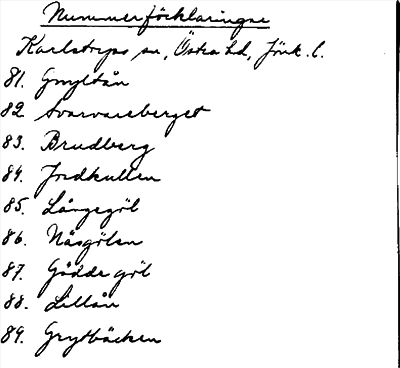 Nummerförklaringar
Karlstorps sn, Östra hd, Jönk. l.
81. Gmyltån
82 Svarvareberget
83. Brudberg
84. Jordkullen
85. Långegöl
86. Näsgölen
87. Gädde göl
88. Lillån
89. Grytbäcken